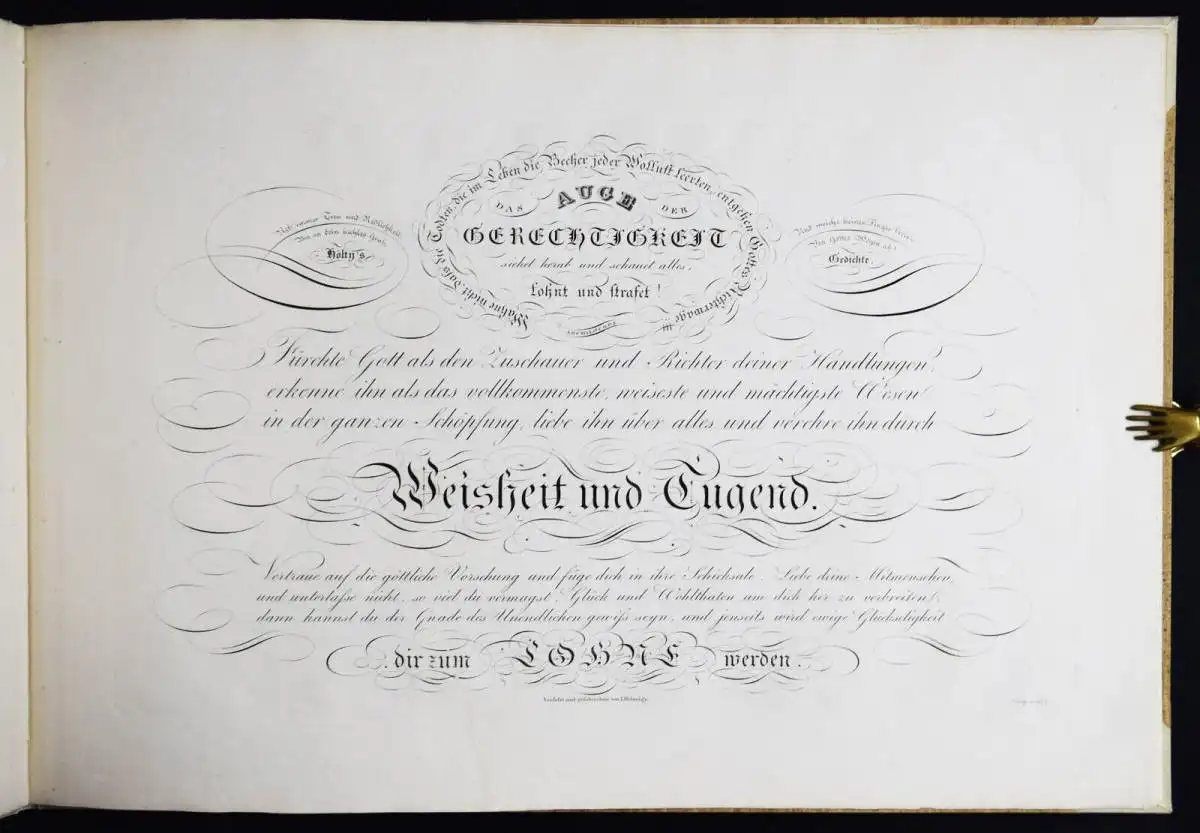 Wähne nicht, daß die Todten, die im Leben die Becher jeder Wollust leerten, entgehen Gottes Richterwage
DAS AUGE DER
GERECHTIGKEIT
siehet herab und schauet alles,
lohnt und strafet!
Üb' immer Treu und Redlichkeit
Bis an dein kühles Grab,
Hölty's
Und weiche keinen Finger breit
Von Gottes Wegen ab!
Gedichte.
Fürchte Gott als den Zuschauer und Richter deiner Handlungen,
erkenne ihn als das vollkommenste, weiseste und mächtigste Wesen
in der ganzen Schöpfung, liebe ihn über alles und verehre ihn durch
Weisheit und Tugend.
Vertraue auf die göttliche Vorsehung und füge dich in ihre Schicksale. Liebe deine Mitmenschen,
und unterlaße nicht, so viel du vermagst, Glück und Wohlthaten um dich her zu verbreiten;
dann kannst du der Gnade des Unendlichen gewiß seyn, und jenseits wird ewige Glückseligkeit
dir zum LOHNE werden.